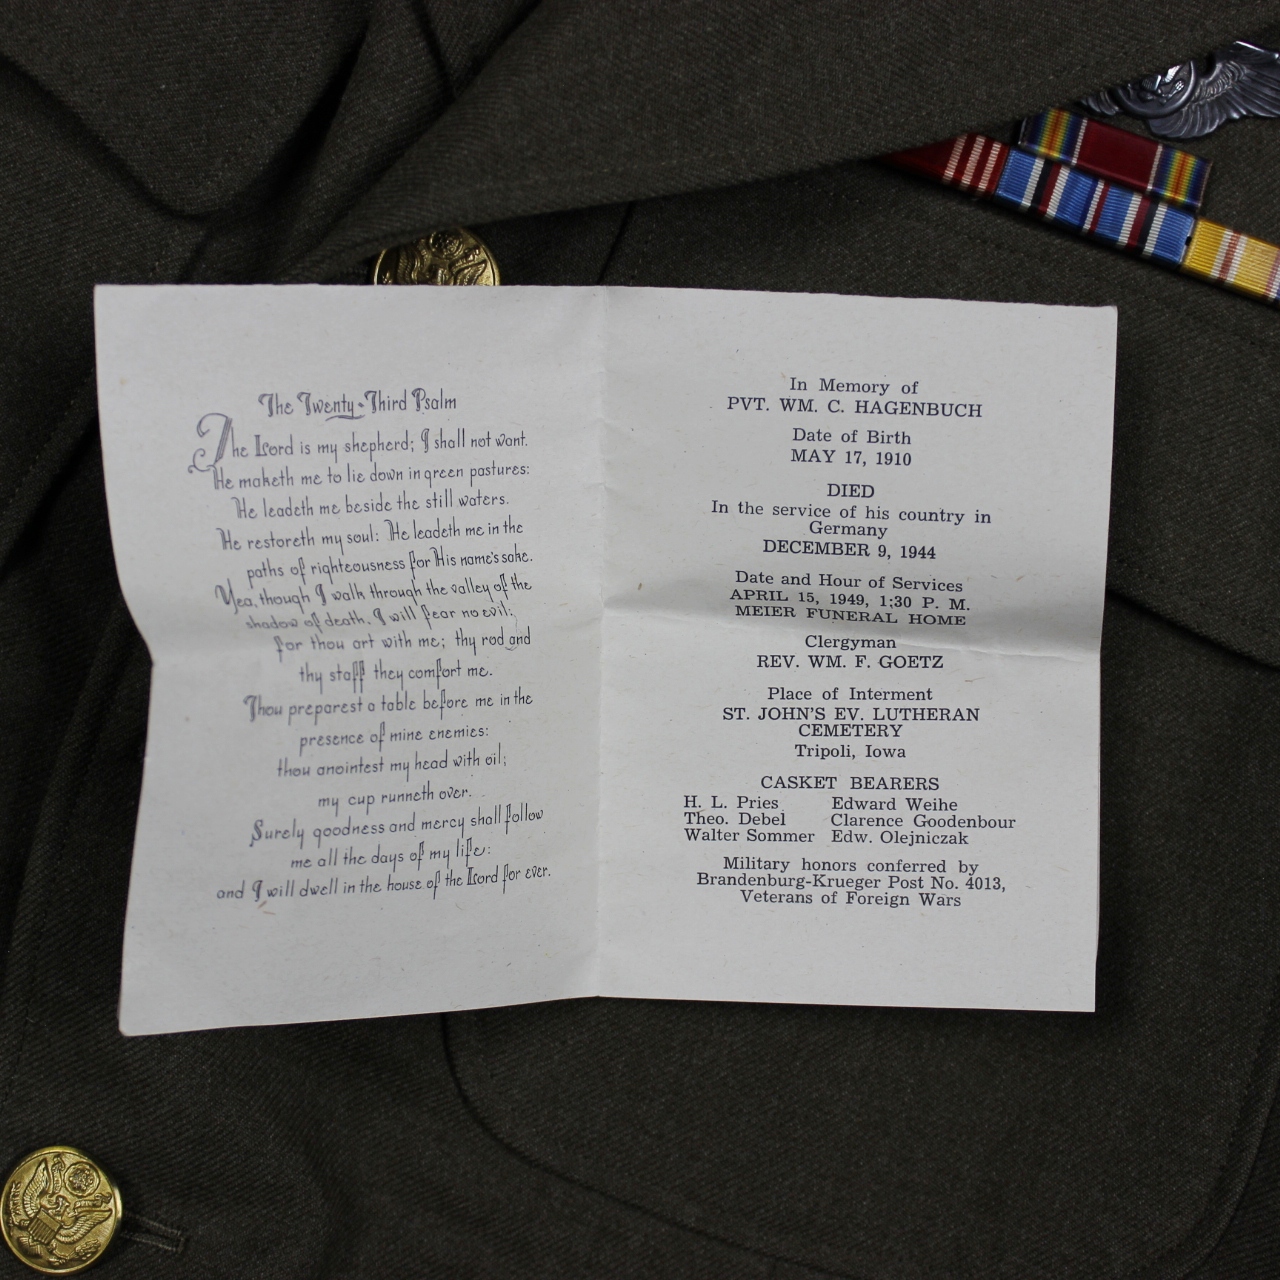 The Twenty-Third Psalm
The Lord is my shepherd; I shall not want.
He maketh me to lie down in green pastures:
He leadeth me beside the still waters.
He restoreth my soul: He leadeth me in the
paths of righteousness for His name's sake.
Yea, though I walk through the valley of the
shadow of death, I will fear no evil:
for thou art with me; thy rod and
thy staff they comfort me.
Thou preparest a table before me in the
presence of mine enemies:
thou anointest my head with oil;
my cup runneth over.
Surely goodness and mercy shall follow
me all the days of my life:
and I will dwell in the house of the Lord for ever.
In Memory of
PVT. WM. C. HAGENBUCH
Date of Birth
MAY 17, 1910
DIED
In the service of his country in
Germany
DECEMBER 9, 1944
Date and Hour of Services
APRIL 15, 1949, 1:30 P. M.
MEIER FUNERAL HOME
Clergyman
REV. WM. F. GOETZ
Place of Interment
ST. JOHN'S EV. LUTHERAN
CEMETERY
Tripoli, Iowa
CASKET BEARERS
H. L. Pries Edward Weihe
Theo. Debel Clarence Goodenbour
Walter Sommer Edw. Olejniczak
Military honors conferred by
Brandenburg-Krueger Post No. 4013,
Veterans of Foreign Wars